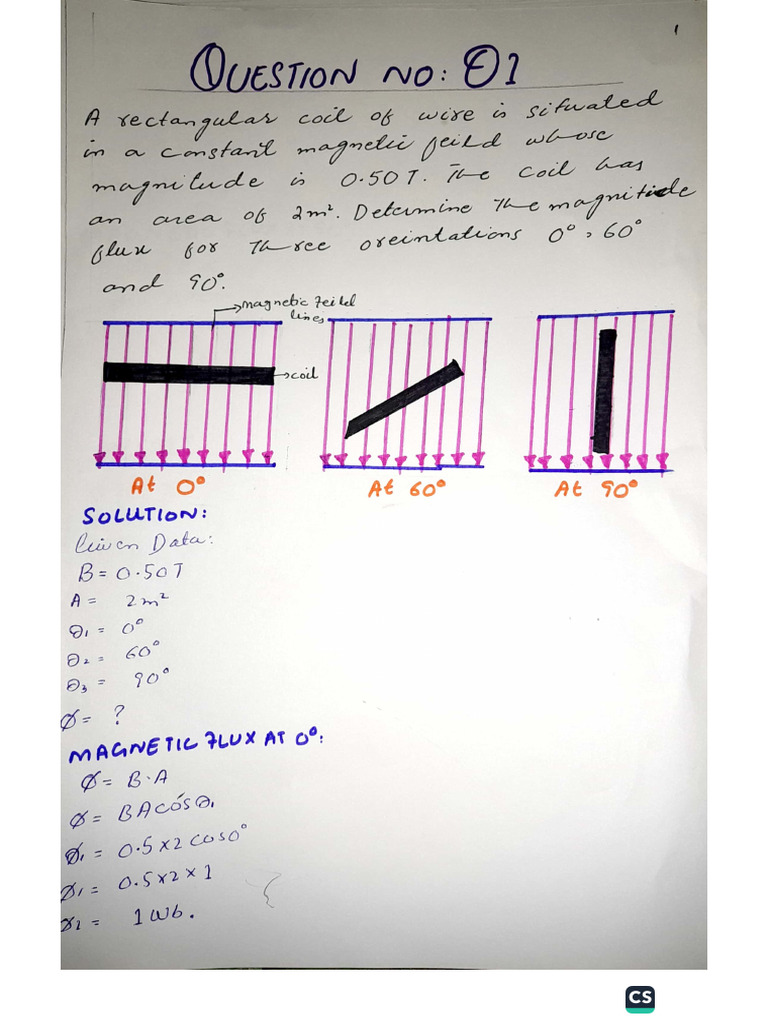 1
QUESTION NO: 01
A rectangular coil of wire is situated
in a constant magnetic feild whose
magnitude is 0.50T. The coil has
an area of 2m². Determine the magnitide
flux for three oreintations 0°, 60°
and 90°.
magnetic feild
lines
coil
At 0°
At 60°
At 90°
SOLUTION:
Given Data:
B = 0.50T
A = 2m²
θ₁ = 0°
θ₂ = 60°
θ₃ = 90°
Ø = ?
MAGNETIC FLUX AT 0°:
Ø = B·A
Ø = BAcosθ₁
Ø₁ = 0.5×2 cos0°
Ø₁ = 0.5×2×1
Ø₂ = 1Wb.
CS